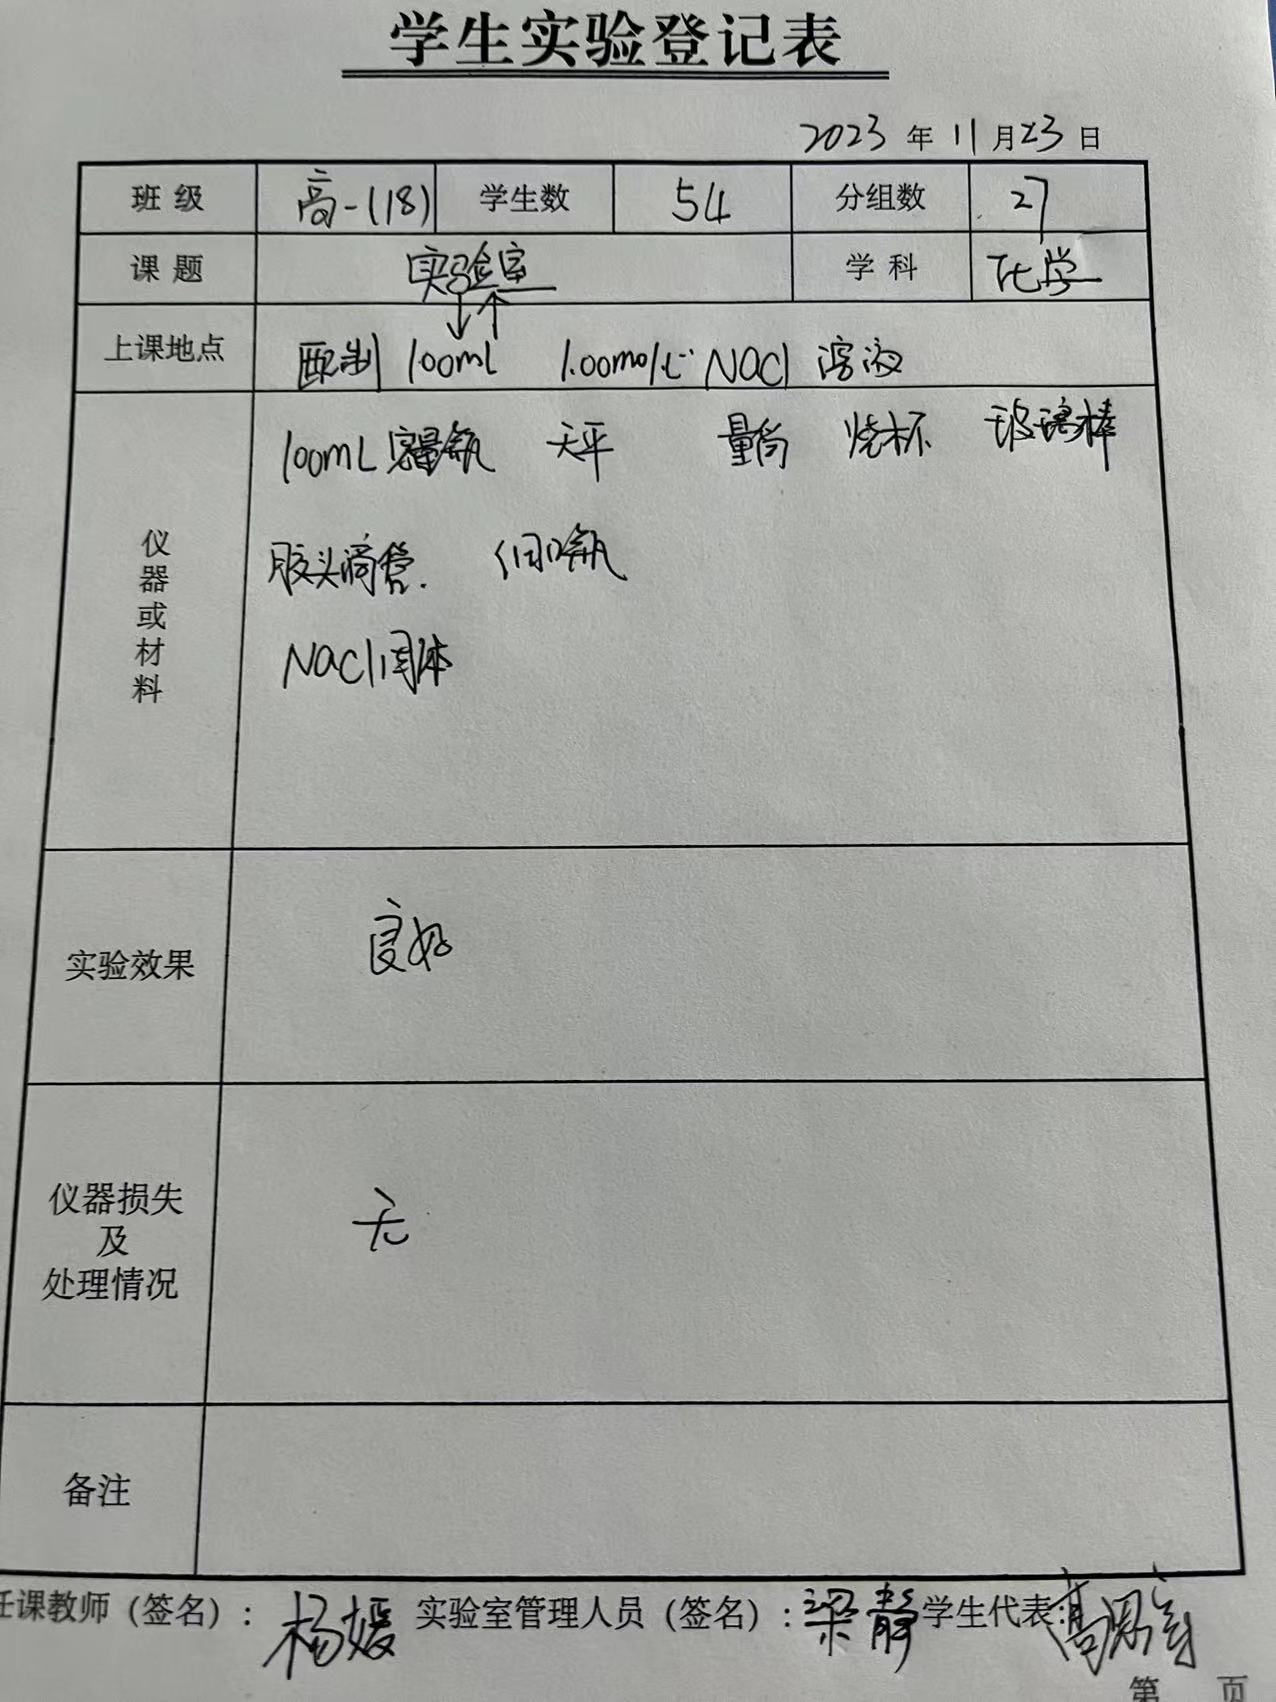 学生实验登记表
2023 年 11 月 23 日
班 级 高一(18) 学生数 54 分组数 27
课 题 实验室 学 科 化学
↓↑
上课地点 配制 100mL 1.00mol·L⁻¹ NaCl 溶液
仪器或材料
100mL 容量瓶 天平 量筒 烧杯 玻璃棒
胶头滴管. 细口瓶
NaCl固体
实验效果 良好
仪器损失
及
处理情况
无
备注
任课教师（签名）: 杨媛 实验室管理人员（签名）: 梁静 学生代表: 高
第 页